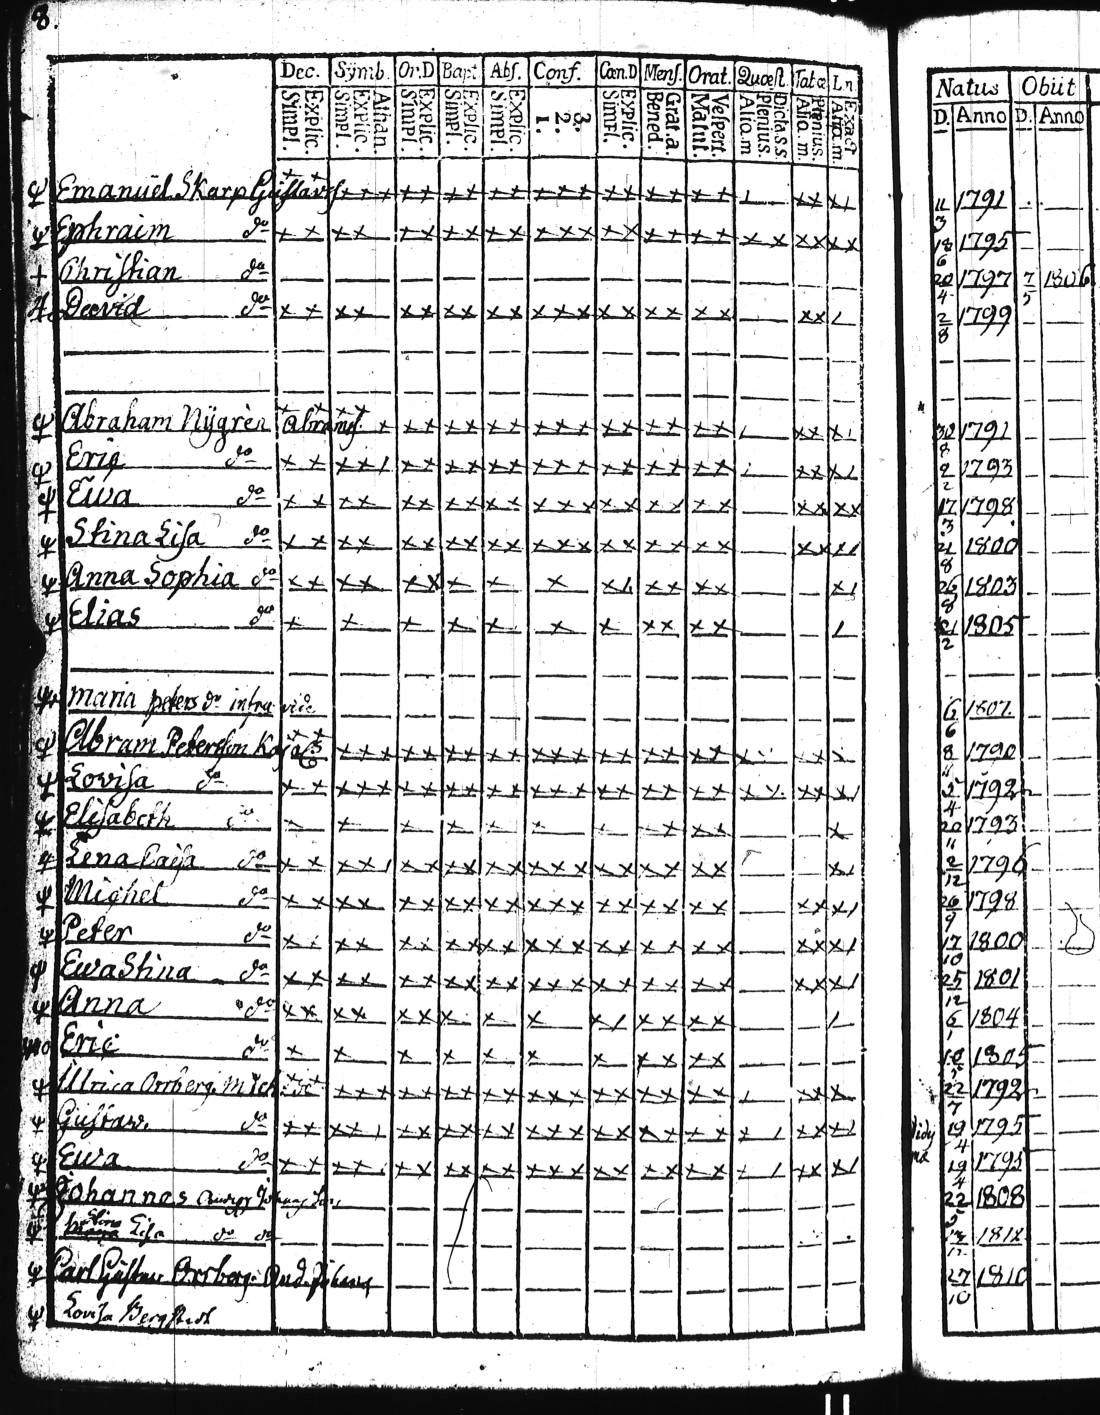 8.
Dec. Symb. Or.D Bapt. Abs. Conf. Cœn.D Mens. Orat. Quæst. Tatæ Ln
Simpl. Explic. Simpl. Explic. Athan. Simpl. Explic. Simpl. Explic. Simpl. Explic. 1. 2. 3. Simpl. Explic. Bened. Grat.a. Matut. Vespert. Aliq.m Plenius. Dicta S.S. Aliq.m. Plenius. Aliq.m. Exact
Natus Obiit
D. Anno D. Anno
Emanuel Skarp Gustavs 11/3 1791
Ephraim do 18/6 1795
Christian do 20/4 1797 7/5 1806
David do 2/8 1799
Abraham Nÿgrèn Abrams. 30/8 1791
Eric do 2/2 1793
Ewa do 17/3 1798
Stina Lisa do 21/8 1800
Anna Sophia do 26/8 1803
Elias do 21/2 1805
Maria Peters do infra vide 6/6 1807
Abram Peterson 8 1790
Lovisa do 5/4 1792
Elisabeth do 20/11 1793
Lena Caisa do 2/12 1796
Michel do 26/9 1798
Peter do 17/10 1800
Ewa Stina do 25/12 1801
Anna do 6/1 1804
Eric do 10 1805
Ulrica Orrberg. Mich. 22/7 1792
Gustav. do 19/4 1795
Ewa do 19/4 1795
Johannes 22/5 1808
Stina Lisa do do 1812
Carl Gustav Orrberg And. Johans 27/10 1810
Lovisa Bergstedt